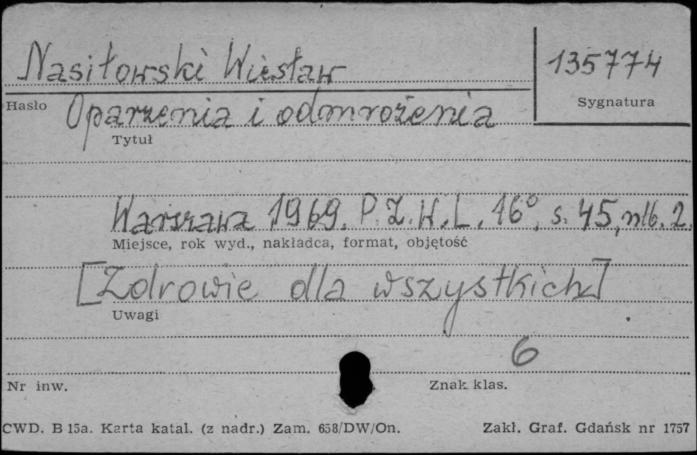 Nasiłowski Wiesław
135774
Hasło
Sygnatura
Oparzenia i odmrożenia
Tytuł
Warszawa 1969. P.Z.W.L. 16°, s. 45, nlb. 2.
Miejsce, rok wyd., nakładca, format, objętość
[Zdrowie dla wszystkich]
Uwagi
6
Nr inw.
Znak klas.
CWD. B 15a. Karta katal. (z nadr.) Zam. 658/DW/On.
Zakł. Graf. Gdańsk nr 1757